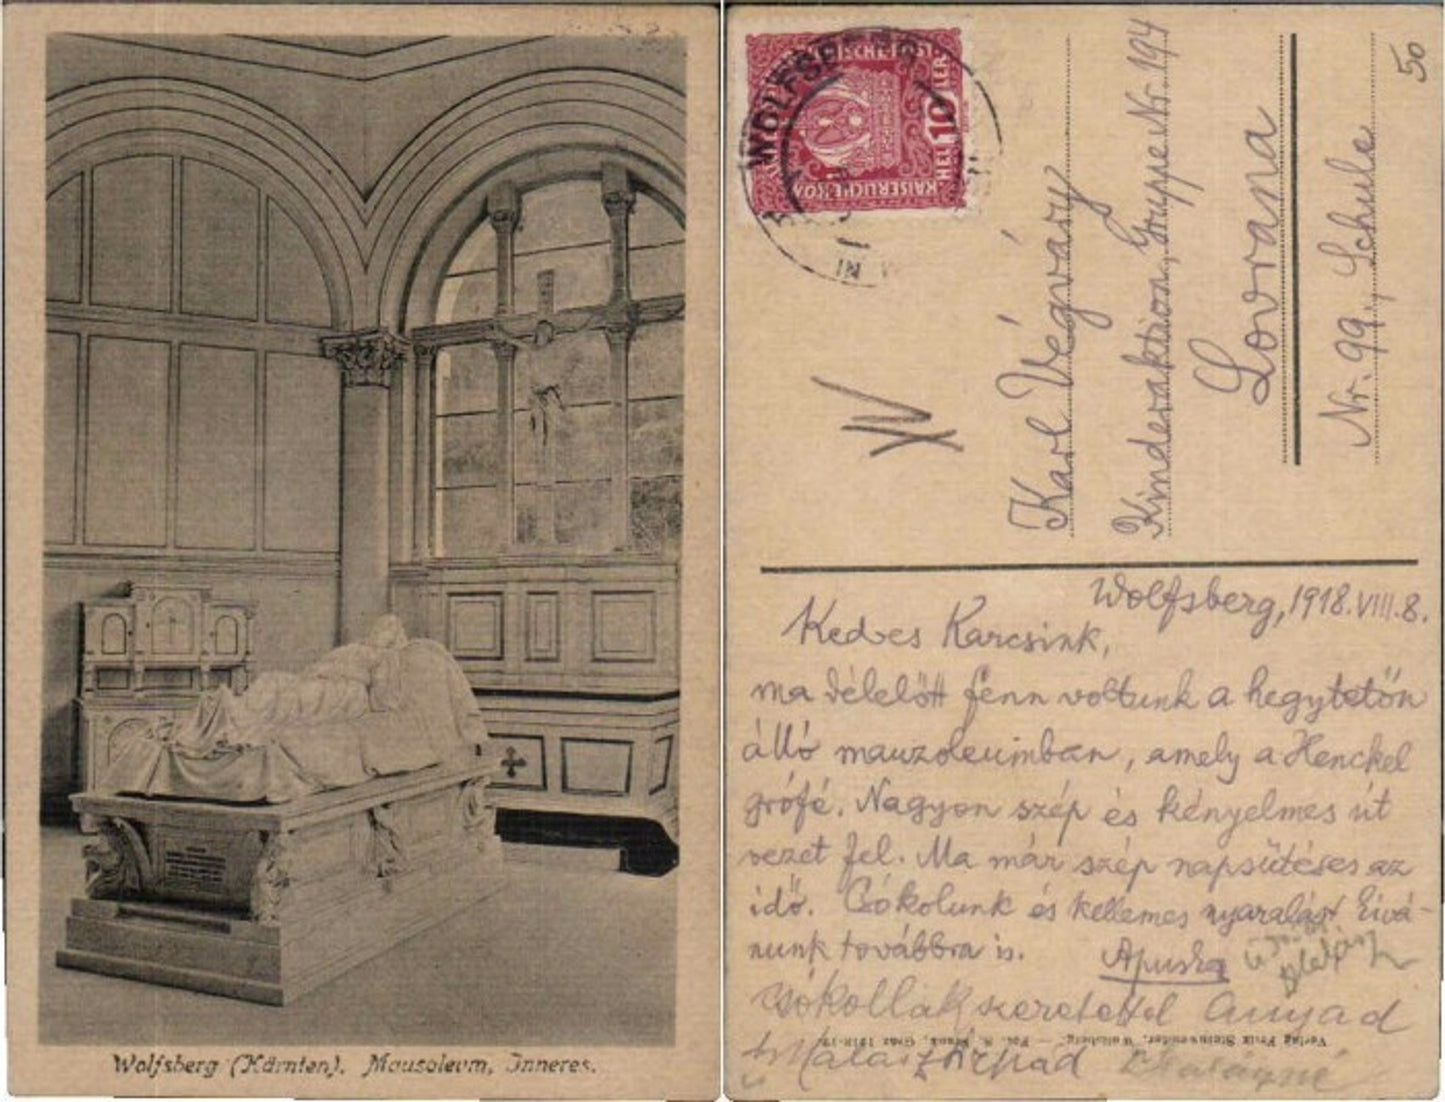 Wolfsberg (Kärnten). Mausoleum, Inneres.
WOLFSB
KAISERLICHE KÖN
10
50
Karl Végváry
Kinderaktion, Gruppe Nr. 194
Lovrana
Nr. 99, Schule
Wolfsberg, 1918. VIII. 8.
Kedves Karcsink,
ma délelőtt fenn voltunk a hegytetőn
álló mauzoleumban, amely a Henckel
grófé. Nagyon szép és kényelmes út
vezet fel. Ma már szép napsütéses az
idő. Csókolunk és kellemes nyaralást kivá-
nunk továbbra is. Apuska
csókollak szeretettel Anyád
Verlag Fritz Steinwender, Wolfsberg. — Fot. Frank, Graz